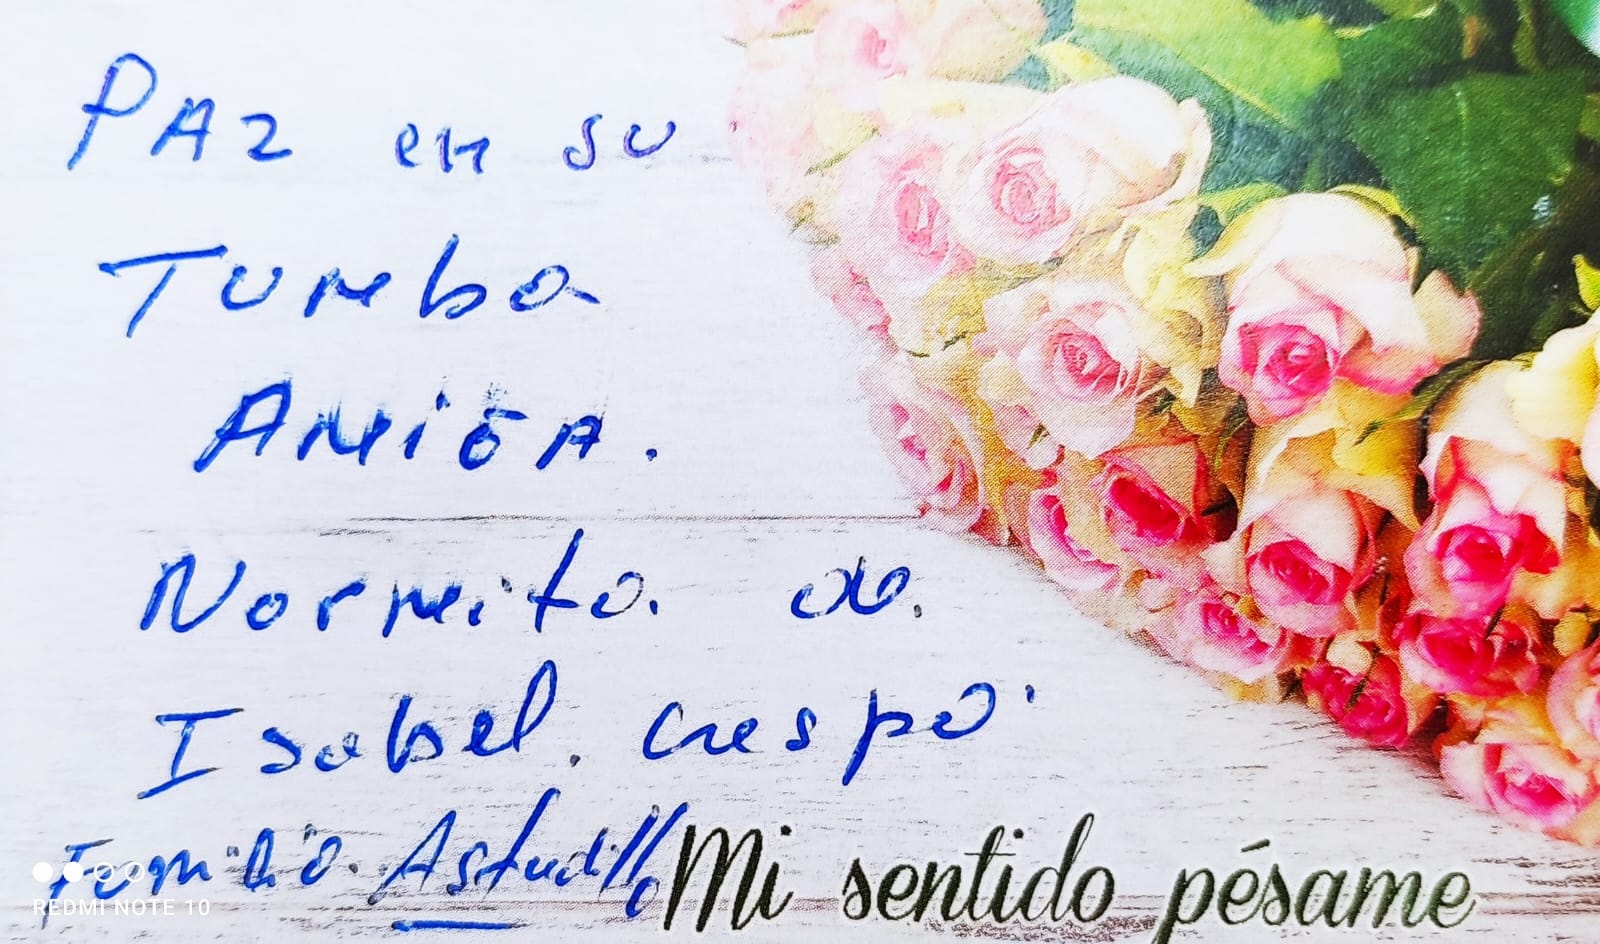 PAZ en su
Tumba
AMiGA.
Normita. de.
Isabel. Crespo.
Familia. Astudillo
Mi sentido pésame
REDMI NOTE 10